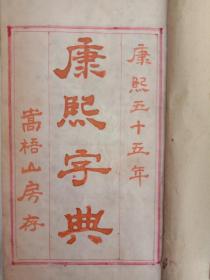 康熙五十五年
康熙字典
嵩梧山房存